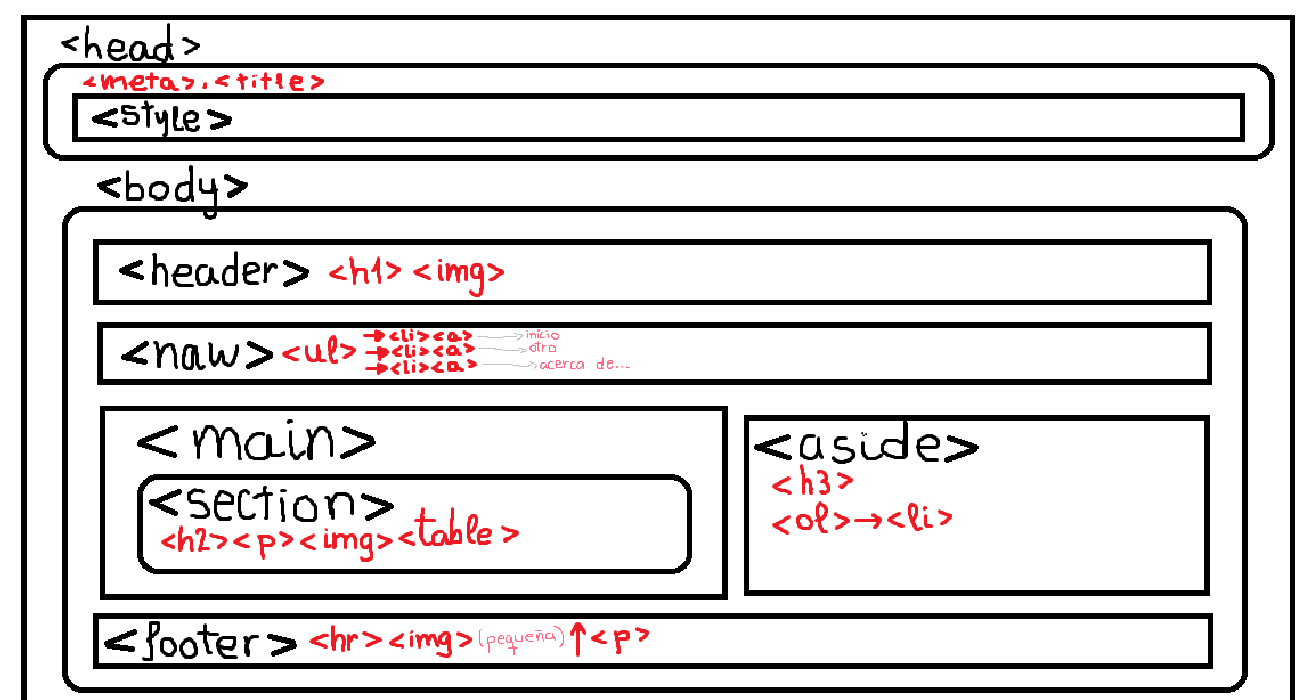 <head>
<meta>.<title>
<style>
<body>
<header> <h1> <img>
<naw> <ul> →<li><a> → inicio
→<li><a> → otro
→<li><a> → acerca de...
<main>
<section>
<h2><p><img><table>
<aside>
<h3>
<ol>→<li>
<footer> <hr><img>(pequeña)↑<p>